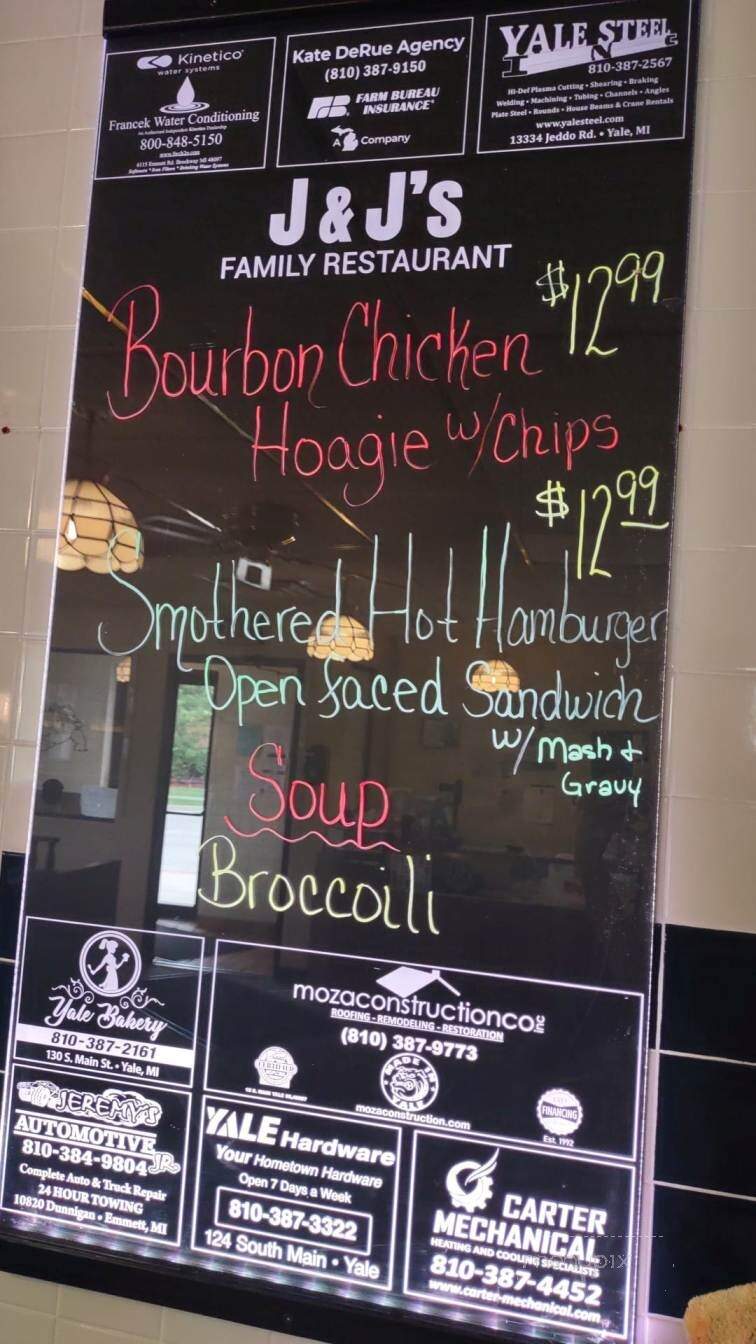 Kinetico
water systems
Francek Water Conditioning
An Authorized Independent Kinetico Dealership
800-848-5150
Softeners * Iron Filters * Drinking Water Systems
Kate DeRue Agency
(810) 387-9150
FB FARM BUREAU
INSURANCE
A Company
YALE STEEL
INC
810-387-2567
Hi-Def Plasma Cutting • Shearing • Braking
Welding • Machining • Tubing • Channels • Angles
Plate Steel • Rounds • House Beams & Crane Rentals
www.yalesteel.com
13334 Jeddo Rd. • Yale, MI
J & J's
FAMILY RESTAURANT
$12.99
Bourbon Chicken
Hoagie w/Chips
$12.99
Smothered Hot Hamburger
Open faced Sandwich
w/ Mash +
Gravy
Soup
Broccoili
Yale Bakery
810-387-2161
130 S. Main St. • Yale, MI
mozaconstructionco inc
ROOFING - REMODELING - RESTORATION
(810) 387-9773
CERTIFIED
MADE IN
YALE
mozaconstruction.com
FINANCING
Est. 1992
JEREMY'S
AUTOMOTIVE JR
810-384-9804
Complete Auto & Truck Repair
24 HOUR TOWING
10820 Dunnigan • Emmett, MI
YALE Hardware
Your Hometown Hardware
Open 7 Days a Week
810-387-3322
124 South Main • Yale
CARTER
MECHANICAL
HEATING AND COOLING SPECIALISTS
810-387-4452
www.carter-mechanical.com